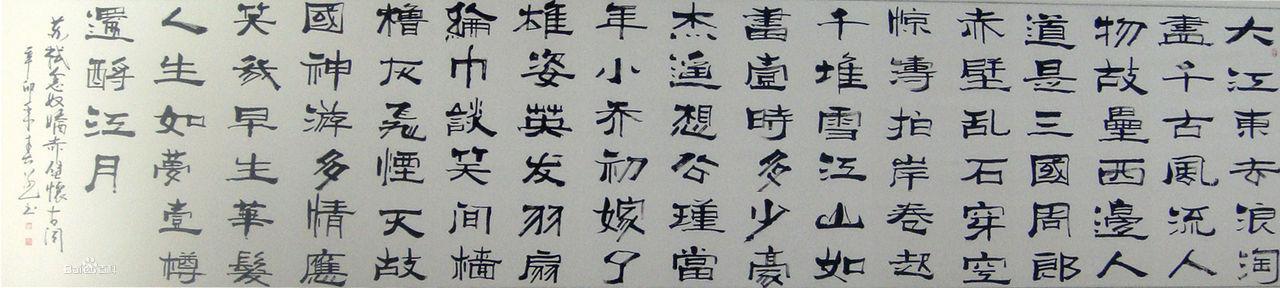 大江東去浪淘
盡千古風流人
物故壘西邊人
道是三國周郎
赤壁乱石穿空
惊濤拍岸卷起
千堆雪江山如
畫壹時多少豪
杰遥想公瑾當
年小乔初嫁了
雄姿英发羽扇
綸巾談笑间檣
櫓灰飛煙灭故
國神游多情應
笑我早生華髮
人生如夢壹樽
還酹江月
苏轼念奴嬌赤壁懷古词
辛卯年春书
Baidu百科